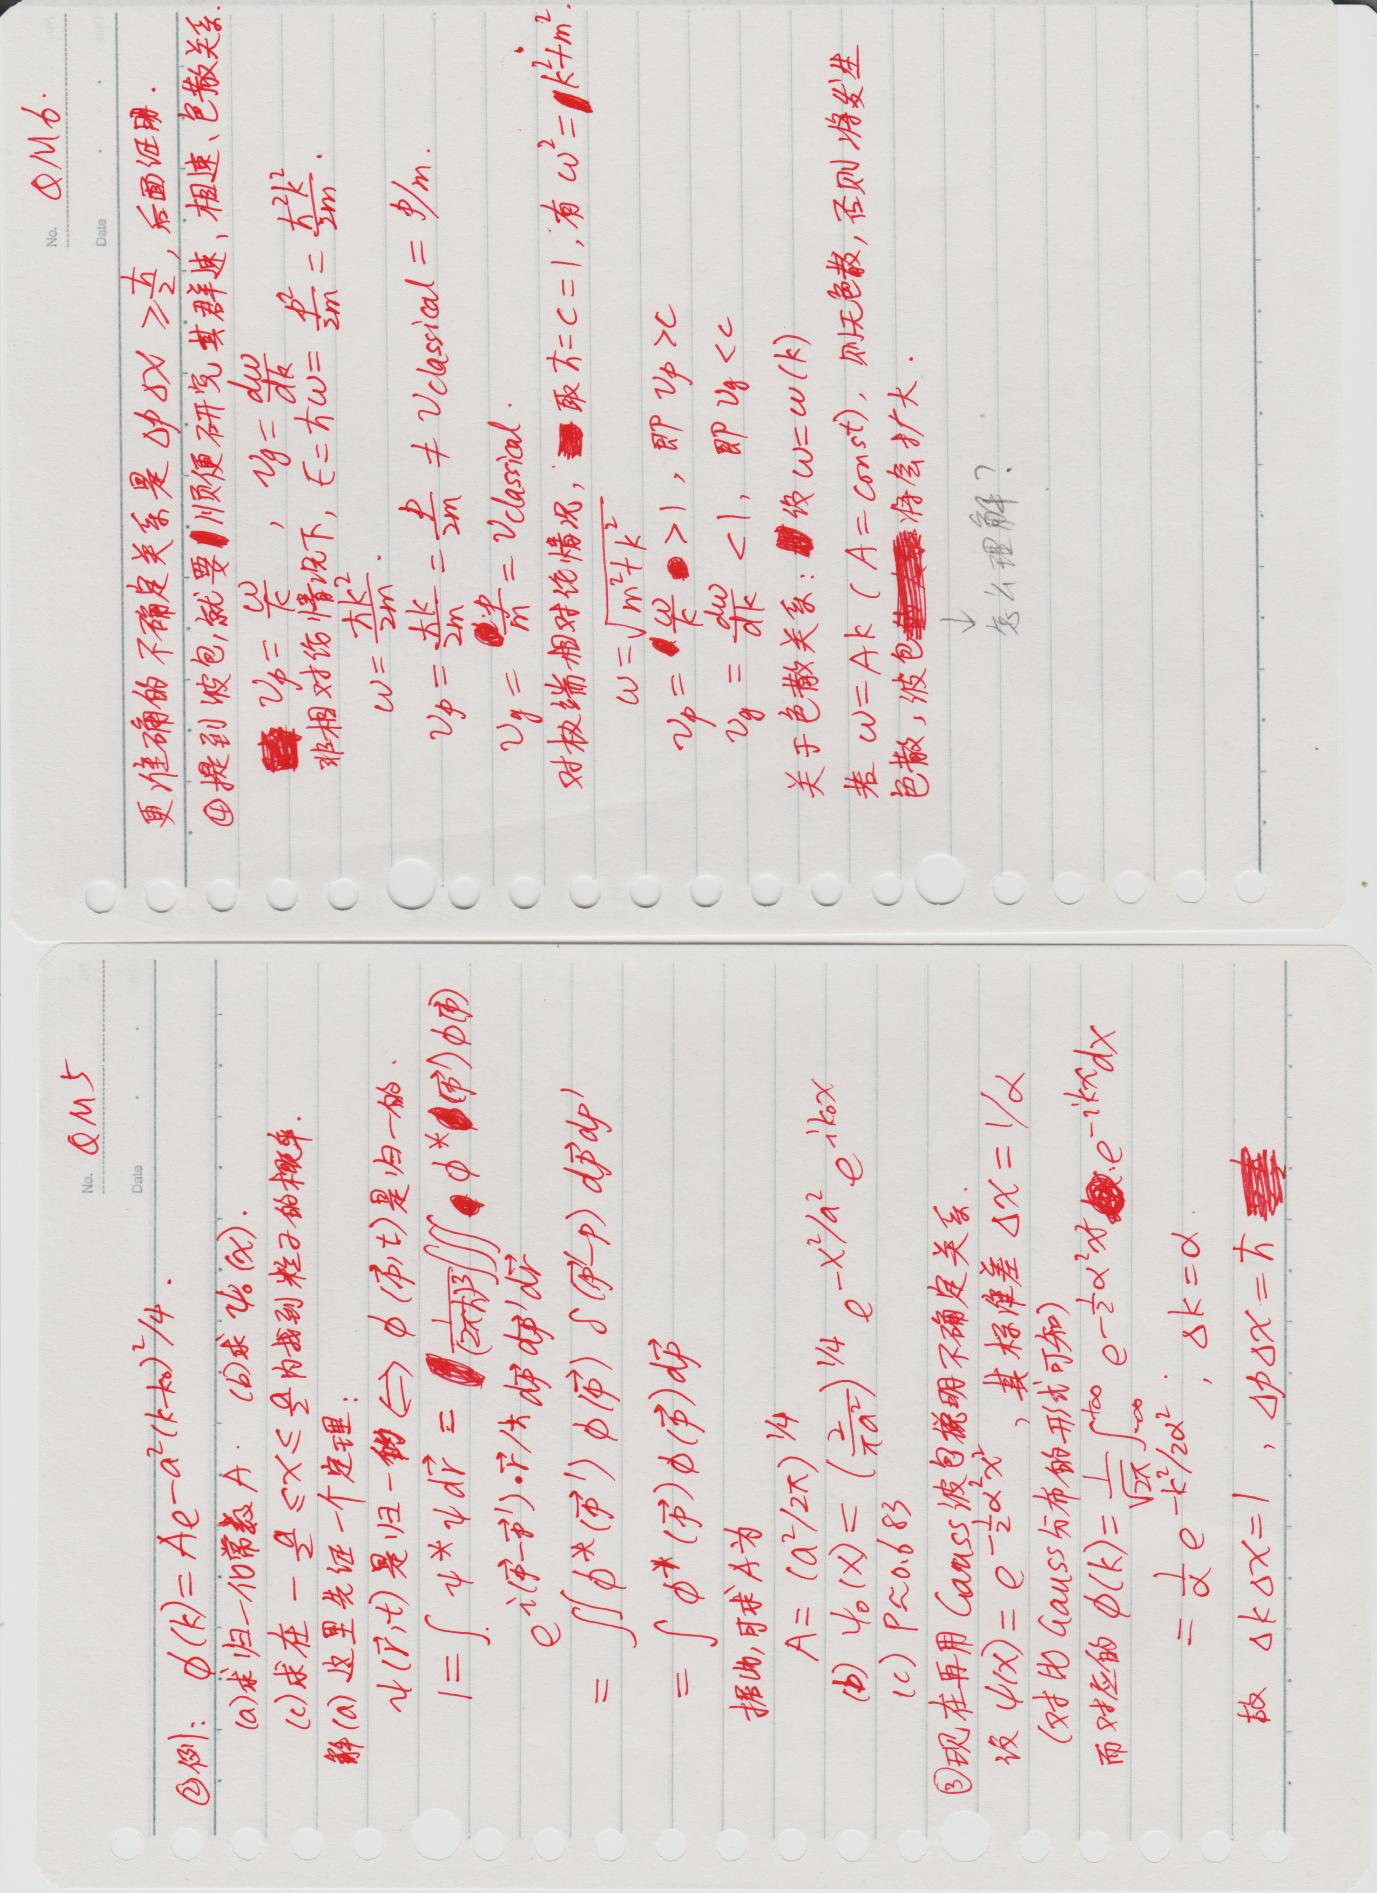 No. QM5
Date
②例: φ(k)=Ae^{-a²(k-k₀)²/4}.
(a)求归一化常数A. (b)求ψ₀(x).
(c)求在 -a/2 ≤x≤ a/2 内找到粒子的概率.
解(a)这里先证一个定理:
ψ(r⃗,t)是归一的⟺φ(p⃗,t)是归一的.
1=∫ψ*ψdr⃗ = 1/(2πħ)³∭φ*(p⃗')φ(p⃗)
e^{i(p⃗-p⃗')·r⃗/ħ}dp⃗dp⃗'dr⃗
= ∬φ*(p⃗')φ(p⃗)δ(p⃗'-p)dp⃗dp'
= ∫φ*(p⃗)φ(p⃗)dp⃗
据此,可求A为
A=(a²/2π)^{1/4}
(b) ψ₀(x)=(2/πa²)^{1/4} e^{-x²/a²} e^{ik₀x}
(c) P≈0.683
③现在再用Gauss波包说明不确定关系.
设ψ(x)=e^{-½α²x²},其标准差Δx=1/α
(对比Gauss分布的形式可知)
而对应的φ(k)=1/√2π ∫_{-∞}^{+∞} e^{-½α²x²}·e^{-ikx}dx
= 1/α e^{-k²/2α²}; Δk=α.
故 ΔkΔx=1, ΔpΔx=ħ
No. QM6.
Date
更准确的不确定关系是ΔpΔx≥ħ/2,后面证明.
④提到波包,就要顺便研究其群速、相速、色散关系.
v_p=ω/k, v_g=dω/dk
非相对论情况下, E=ħω=p²/2m=ħ²k²/2m.
ω=ħk²/2m.
v_p=ħk/2m=p/2m≠v_classical=p/m.
v_g=p/m=v_classical.
对极端相对论情况, 取ħ=c=1,有ω²=k²+m².
ω=√(m²+k²)
v_p=ω/k>1, 即v_p>c
v_g=dω/dk<1, 即v_g<c
关于色散关系: 设ω=ω(k)
若ω=Ak(A=const),则无色散,否则将发生
色散,波包将会扩大.
↓
怎么理解?